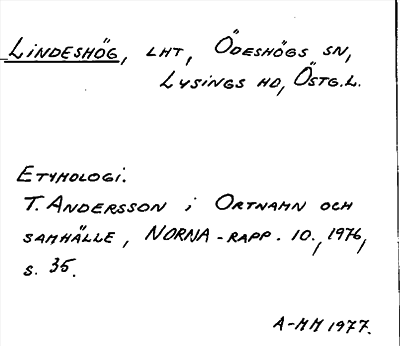 LINDESHÖG, LHT, ÖDESHÖGS SN,
LYSINGS HD, ÖSTG.L.
ETYMOLOGI.
T. ANDERSSON i ORTNAMN OCH
SAMHÄLLE, NORNA-RAPP. 10., 1976,
S. 35.
A-MH 1977.